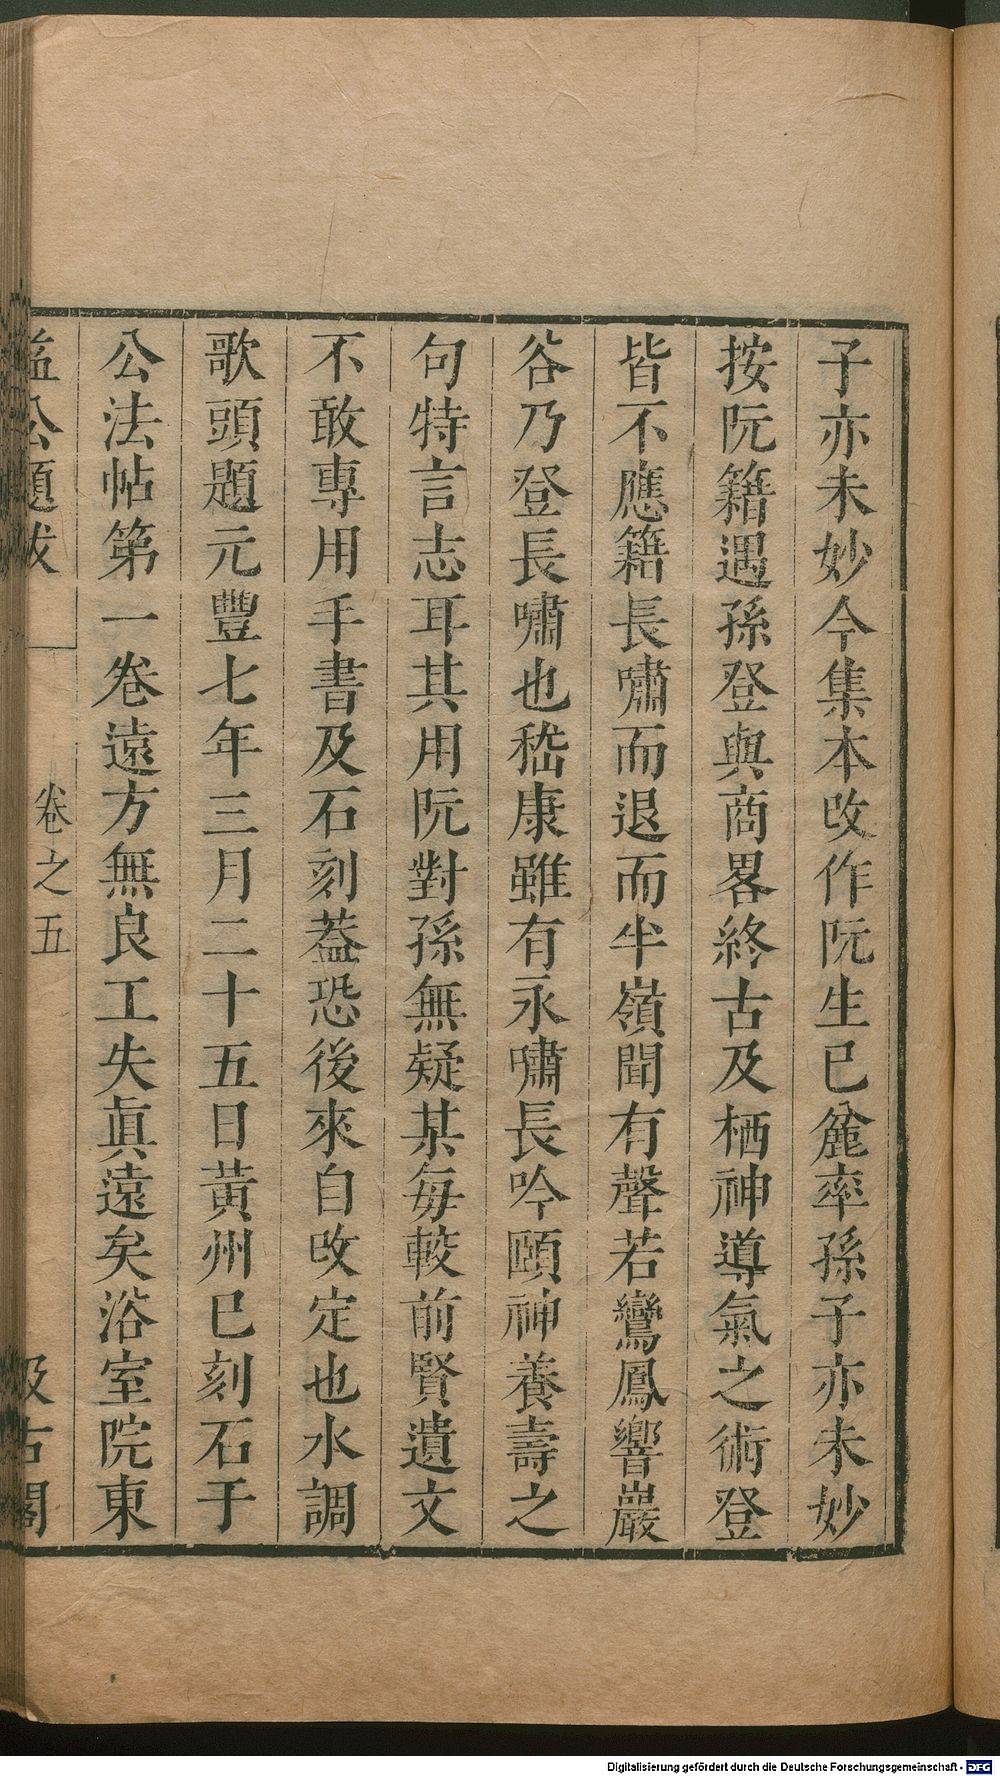 子亦未妙今集本改作阮生已麄率孫子亦未妙
按阮籍遇孫登與商畧終古及栖神導氣之術登
皆不應籍長嘯而退而半嶺聞有聲若鸞鳳響巖
谷乃登長嘯也嵇康雖有永嘯長吟頤神養壽之
句特言志耳其用阮對孫無疑某每較前賢遺文
不敢專用手書及石刻葢恐後來自改定也水調
歌頭題元豐七年三月二十五日黃州已刻石于
公法帖第一卷遠方無良工失眞遠矣浴室院東
益公題跋 卷之五 汲古閣
Digitalisierung gefördert durch die Deutsche Forschungsgemeinschaft - DFG